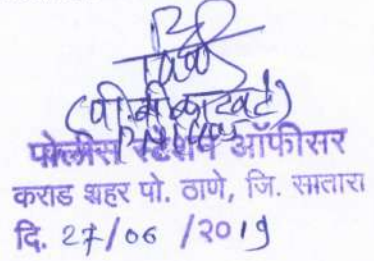 (पी.बी.काटवटे)
पोलीस स्टेशन ऑफीसर
कराड शहर पो. ठाणे, जि. सातारा
दि. 27/06 /2019